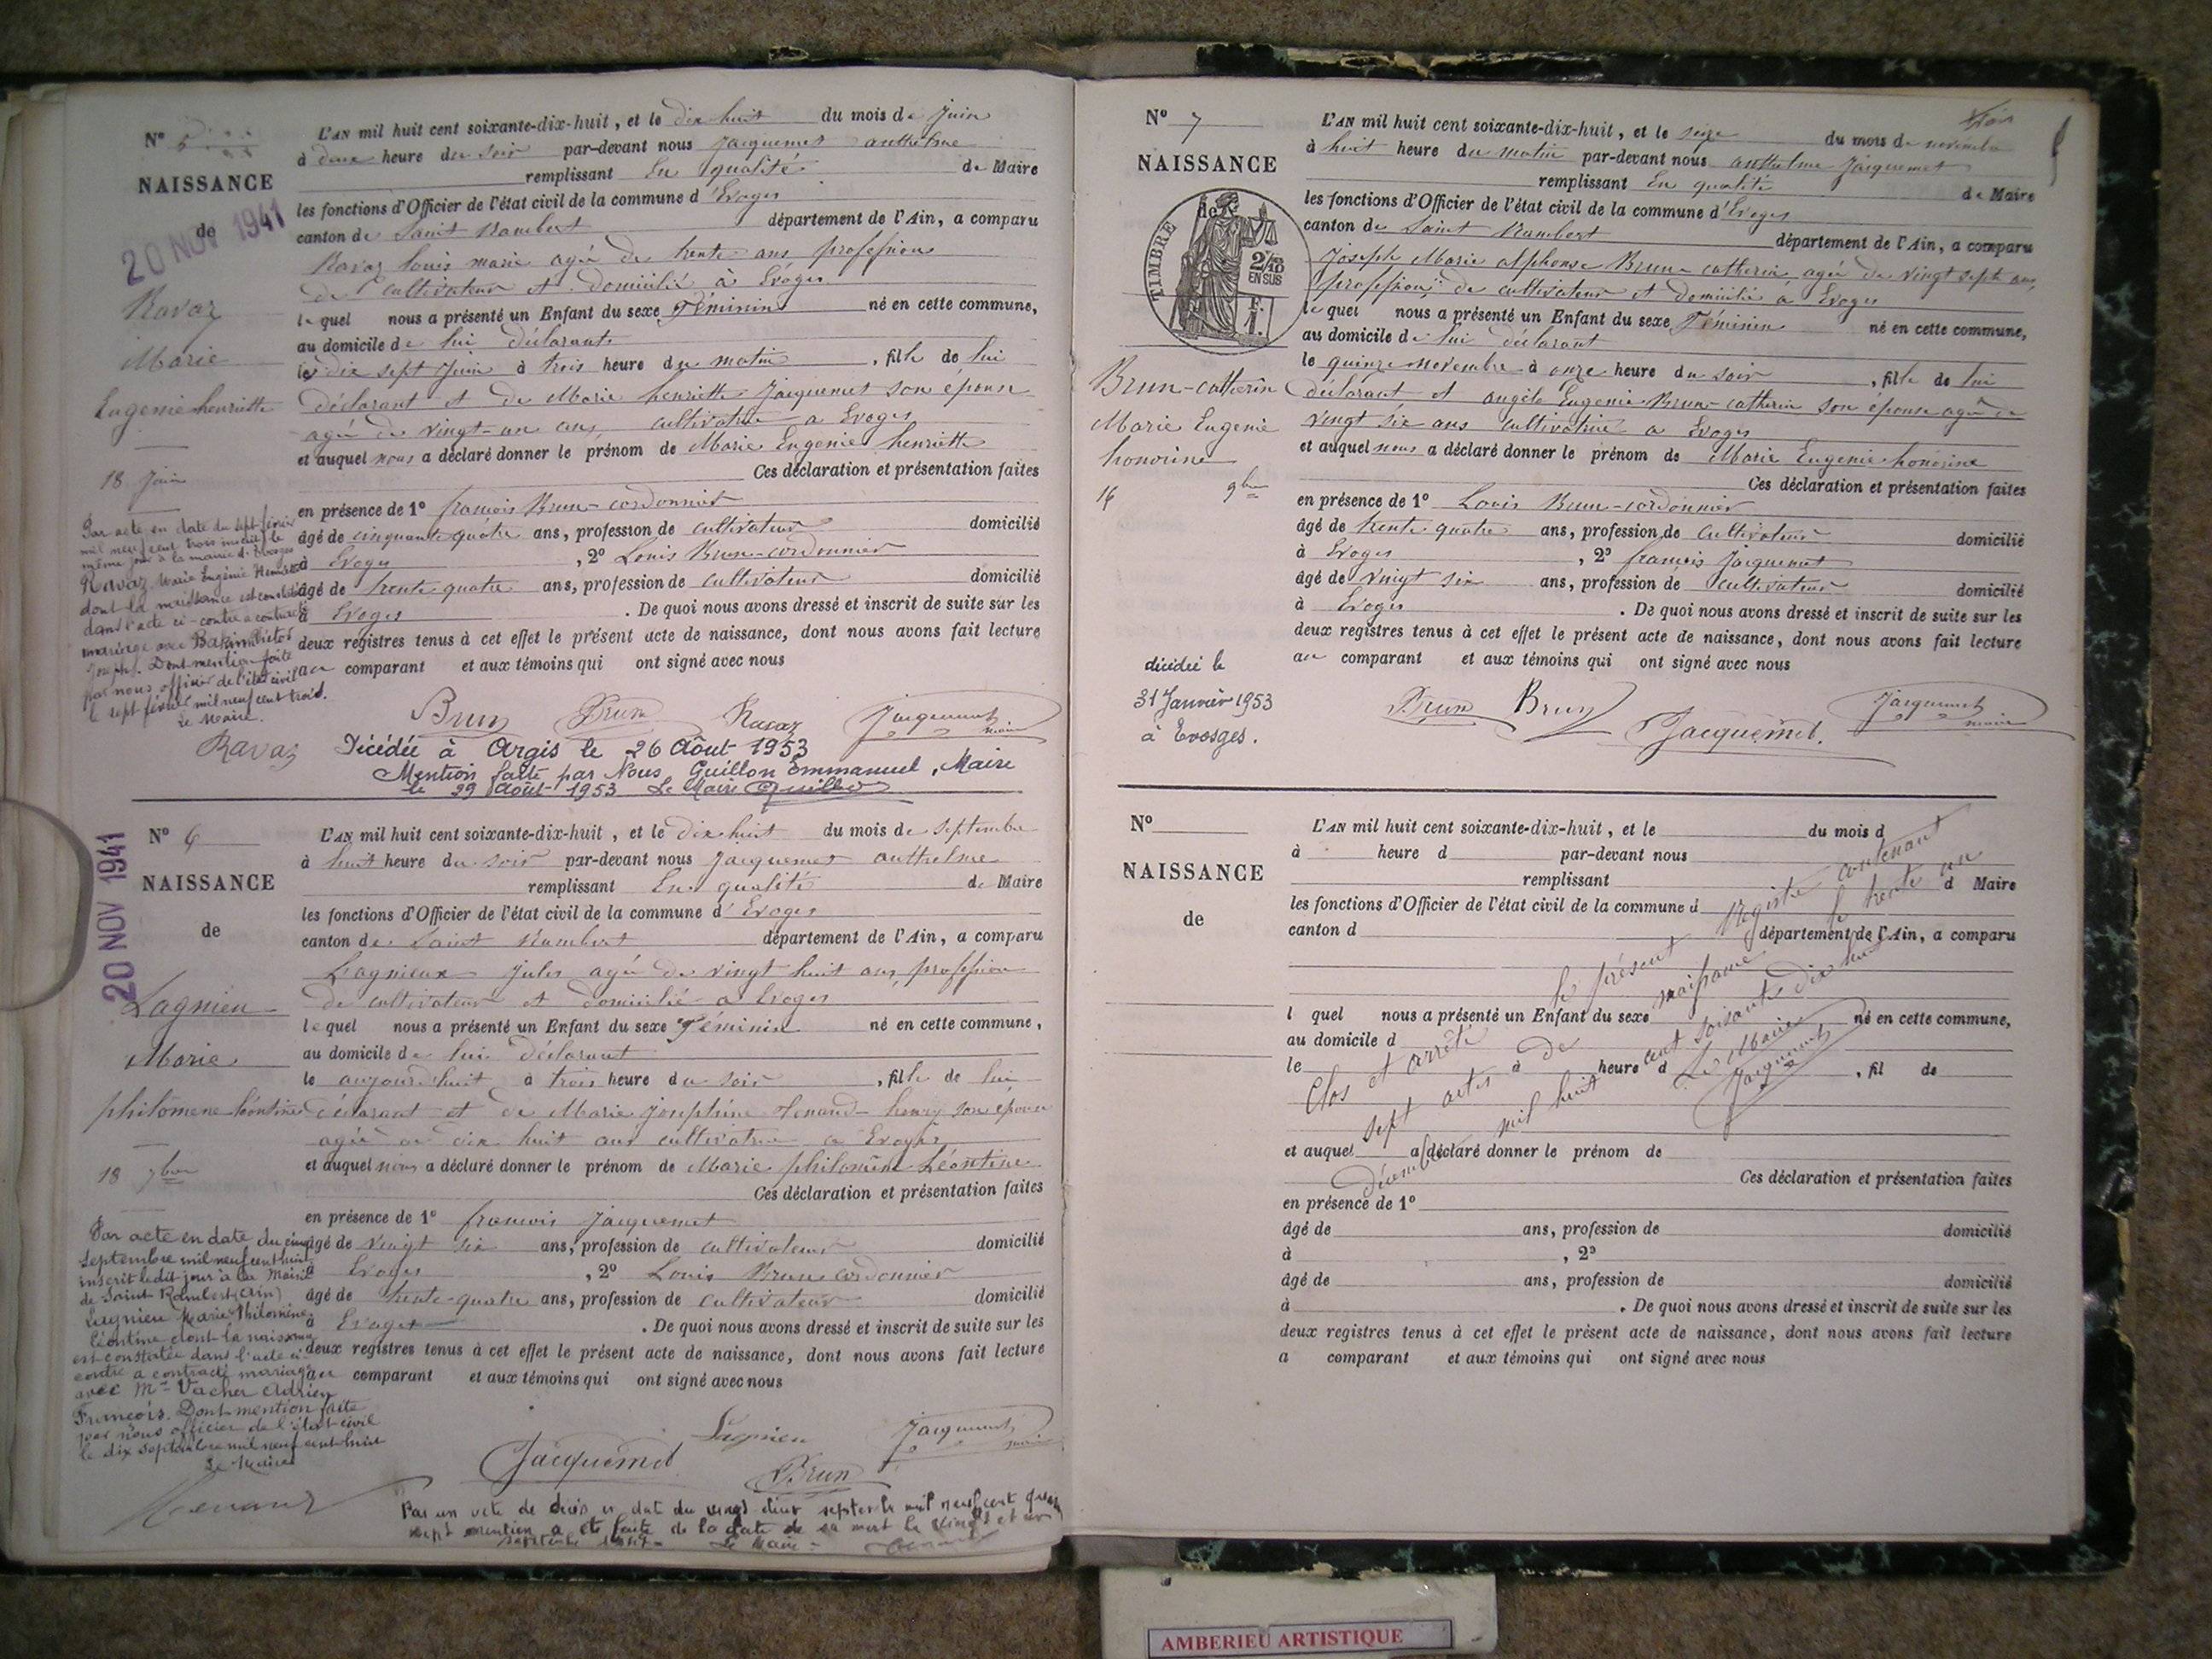 N° 5
NAISSANCE
de
20 NOV 1941
Ravaz
Marie
Eugenie henriette
18 Juin
L'AN mil huit cent soixante-dix-huit, et le dix huit du mois de Juin
à deux heure du soir par-devant nous Jacquemet anthelme
remplissant En qualité de Maire
les fonctions d'Officier de l'état civil de la commune d'Evoges
canton de Saint Rambert département de l'Ain, a comparu
Ravaz louis marie agé de trente ans profession
de cultivateur et domicilié à Evoges
lequel nous a présenté un Enfant du sexe Féminin né en cette commune,
au domicile de lui déclarant
le dix sept Juin à trois heure du matin, fille de lui
déclarant et de Marie henriette Jacquemet son épouse
agée de vingt-un ans cultivatrice a Evoges
et auquel nous a déclaré donner le prénom de Marie Eugenie henriette
Ces déclaration et présentation faites
en présence de 1° francois Brun-cordonnier
âgé de cinquante quatre ans, profession de cultivateur domicilié
à Evoges, 2° Louis Brun-cordonnier
âgé de trente quatre ans, profession de cultivateur domicilié
à Evoges. De quoi nous avons dressé et inscrit de suite sur les
deux registres tenus à cet effet le présent acte de naissance, dont nous avons fait lecture
au comparant et aux témoins qui ont signé avec nous
Par acte en date du sept février
mil neuf cent trois inscrit le
même jour à la mairie d'Evosges
Ravaz Marie Eugénie Henriette
dont la naissance est constatée
dans l'acte ci-contre a contracté
mariage avec
Joseph. Dont mention faite
par nous officier de l'état civil
le sept février mil neuf cent trois.
Le Maire.
Ravaz
Brun Brun Ravaz Jacquemet maire
Décédée à Argis le 26 Août 1953
Mention faite par Nous Guillon Emmanuel, Maire
le 29 Août 1953 Le Maire Guillon
N° 6
NAISSANCE
de
20 NOV 1941
Lagnieu
Marie
philomene léontine
18 7bre
L'AN mil huit cent soixante-dix-huit, et le dix huit du mois de septembre
à huit heure du soir par-devant nous Jacquemet anthelme
remplissant En qualité de Maire
les fonctions d'Officier de l'état civil de la commune d'Evoges
canton de Saint Rambert département de l'Ain, a comparu
Lagnieux Jules agé de vingt huit ans profession
de cultivateur et domicilié a Evoges
lequel nous a présenté un Enfant du sexe Féminin né en cette commune,
au domicile de lui déclarant
le aujourd'huit à trois heure du soir, fille de lui
déclarant et de Marie Joséphine son épouse
agée de dix huit ans cultivatrice a Evoges
et auquel nous a déclaré donner le prénom de Marie philomène Léontine
Ces déclaration et présentation faites
en présence de 1° francois Jacquemet
âgé de vingt six ans, profession de cultivateur domicilié
à Evoges, 2° Louis Brun cordonnier
âgé de trente-quatre ans, profession de cultivateur domicilié
à Evoges. De quoi nous avons dressé et inscrit de suite sur les
deux registres tenus à cet effet le présent acte de naissance, dont nous avons fait lecture
au comparant et aux témoins qui ont signé avec nous
Par acte en date du cinq
septembre mil neuf cent huit
inscrit ledit jour à la Mairie
de Saint Rambert (Ain)
Lagnieu Marie Philomène
Léontine dont la naissance
est constatée dans l'acte ci-
contre a contracté mariage
avec Mr Vacher Adrien
François. Dont mention faite
par nous officier de l'état civil
le dix septembre mil neuf cent huit
Le Maire
Lagnieu Jacquemet maire
Jacquemet Brun
Par un acte de décès en date du vingt deux septembre mil neuf cent
sept mention a été faite de la date de sa mort le vingt et un
septembre Le Maire
N° 7
NAISSANCE
de
TIMBRE
2/10
EN SUS
F.
1.
Brun-catherin
Marie Eugenie
honorine
16 9bre
décédée le
31 Janvier 1953
à Evosges.
L'AN mil huit cent soixante-dix-huit, et le seize du mois de novembre
à huit heure du matin par-devant nous anthelme Jacquemet
remplissant En qualité de Maire
les fonctions d'Officier de l'état civil de la commune d'Evoges
canton de Saint Rambert département de l'Ain, a comparu
Joseph Marie alphonse Brun-catherin agée de vingt sept ans,
profession de cultivateur et domicilié a Evoges
le quel nous a présenté un Enfant du sexe Féminin né en cette commune,
au domicile de lui déclarant
le quinze novembre à onze heure du soir, fille de lui
déclarant et angèle Eugenie Brun-catherin son épouse agée de
vingt six ans cultivatrice a Evoges
et auquel nous a déclaré donner le prénom de Marie Eugenie honorine
Ces déclaration et présentation faites
en présence de 1° Louis Brun-cordonnier
âgé de trente quatre ans, profession de cultivateur domicilié
à Evoges, 2° francois Jacquemet
âgé de vingt six ans, profession de cultivateur domicilié
à Evoges. De quoi nous avons dressé et inscrit de suite sur les
deux registres tenus à cet effet le présent acte de naissance, dont nous avons fait lecture
au comparant et aux témoins qui ont signé avec nous
Brun Brun Jacquemet. Jacquemet maire
N°
NAISSANCE
de
L'AN mil huit cent soixante-dix-huit, et le du mois d
à heure d par-devant nous
remplissant d Maire
les fonctions d'Officier de l'état civil de la commune d
canton d département de l'Ain, a comparu
l quel nous a présenté un Enfant du sexe né en cette commune,
au domicile d
le à heure d, fil de
et auquel a déclaré donner le prénom de
Ces déclaration et présentation faites
en présence de 1°
âgé de ans, profession de domicilié
à, 2°
âgé de ans, profession de domicilié
à. De quoi nous avons dressé et inscrit de suite sur les
deux registres tenus à cet effet le présent acte de naissance, dont nous avons fait lecture
a comparant et aux témoins qui ont signé avec nous
Clos et arrêté le présent registre contenant
sept actes de naissance le trente un
décembre mil huit cent soixante dix huit
Le Maire
Jacquemet
AMBERIEU ARTISTIQUE